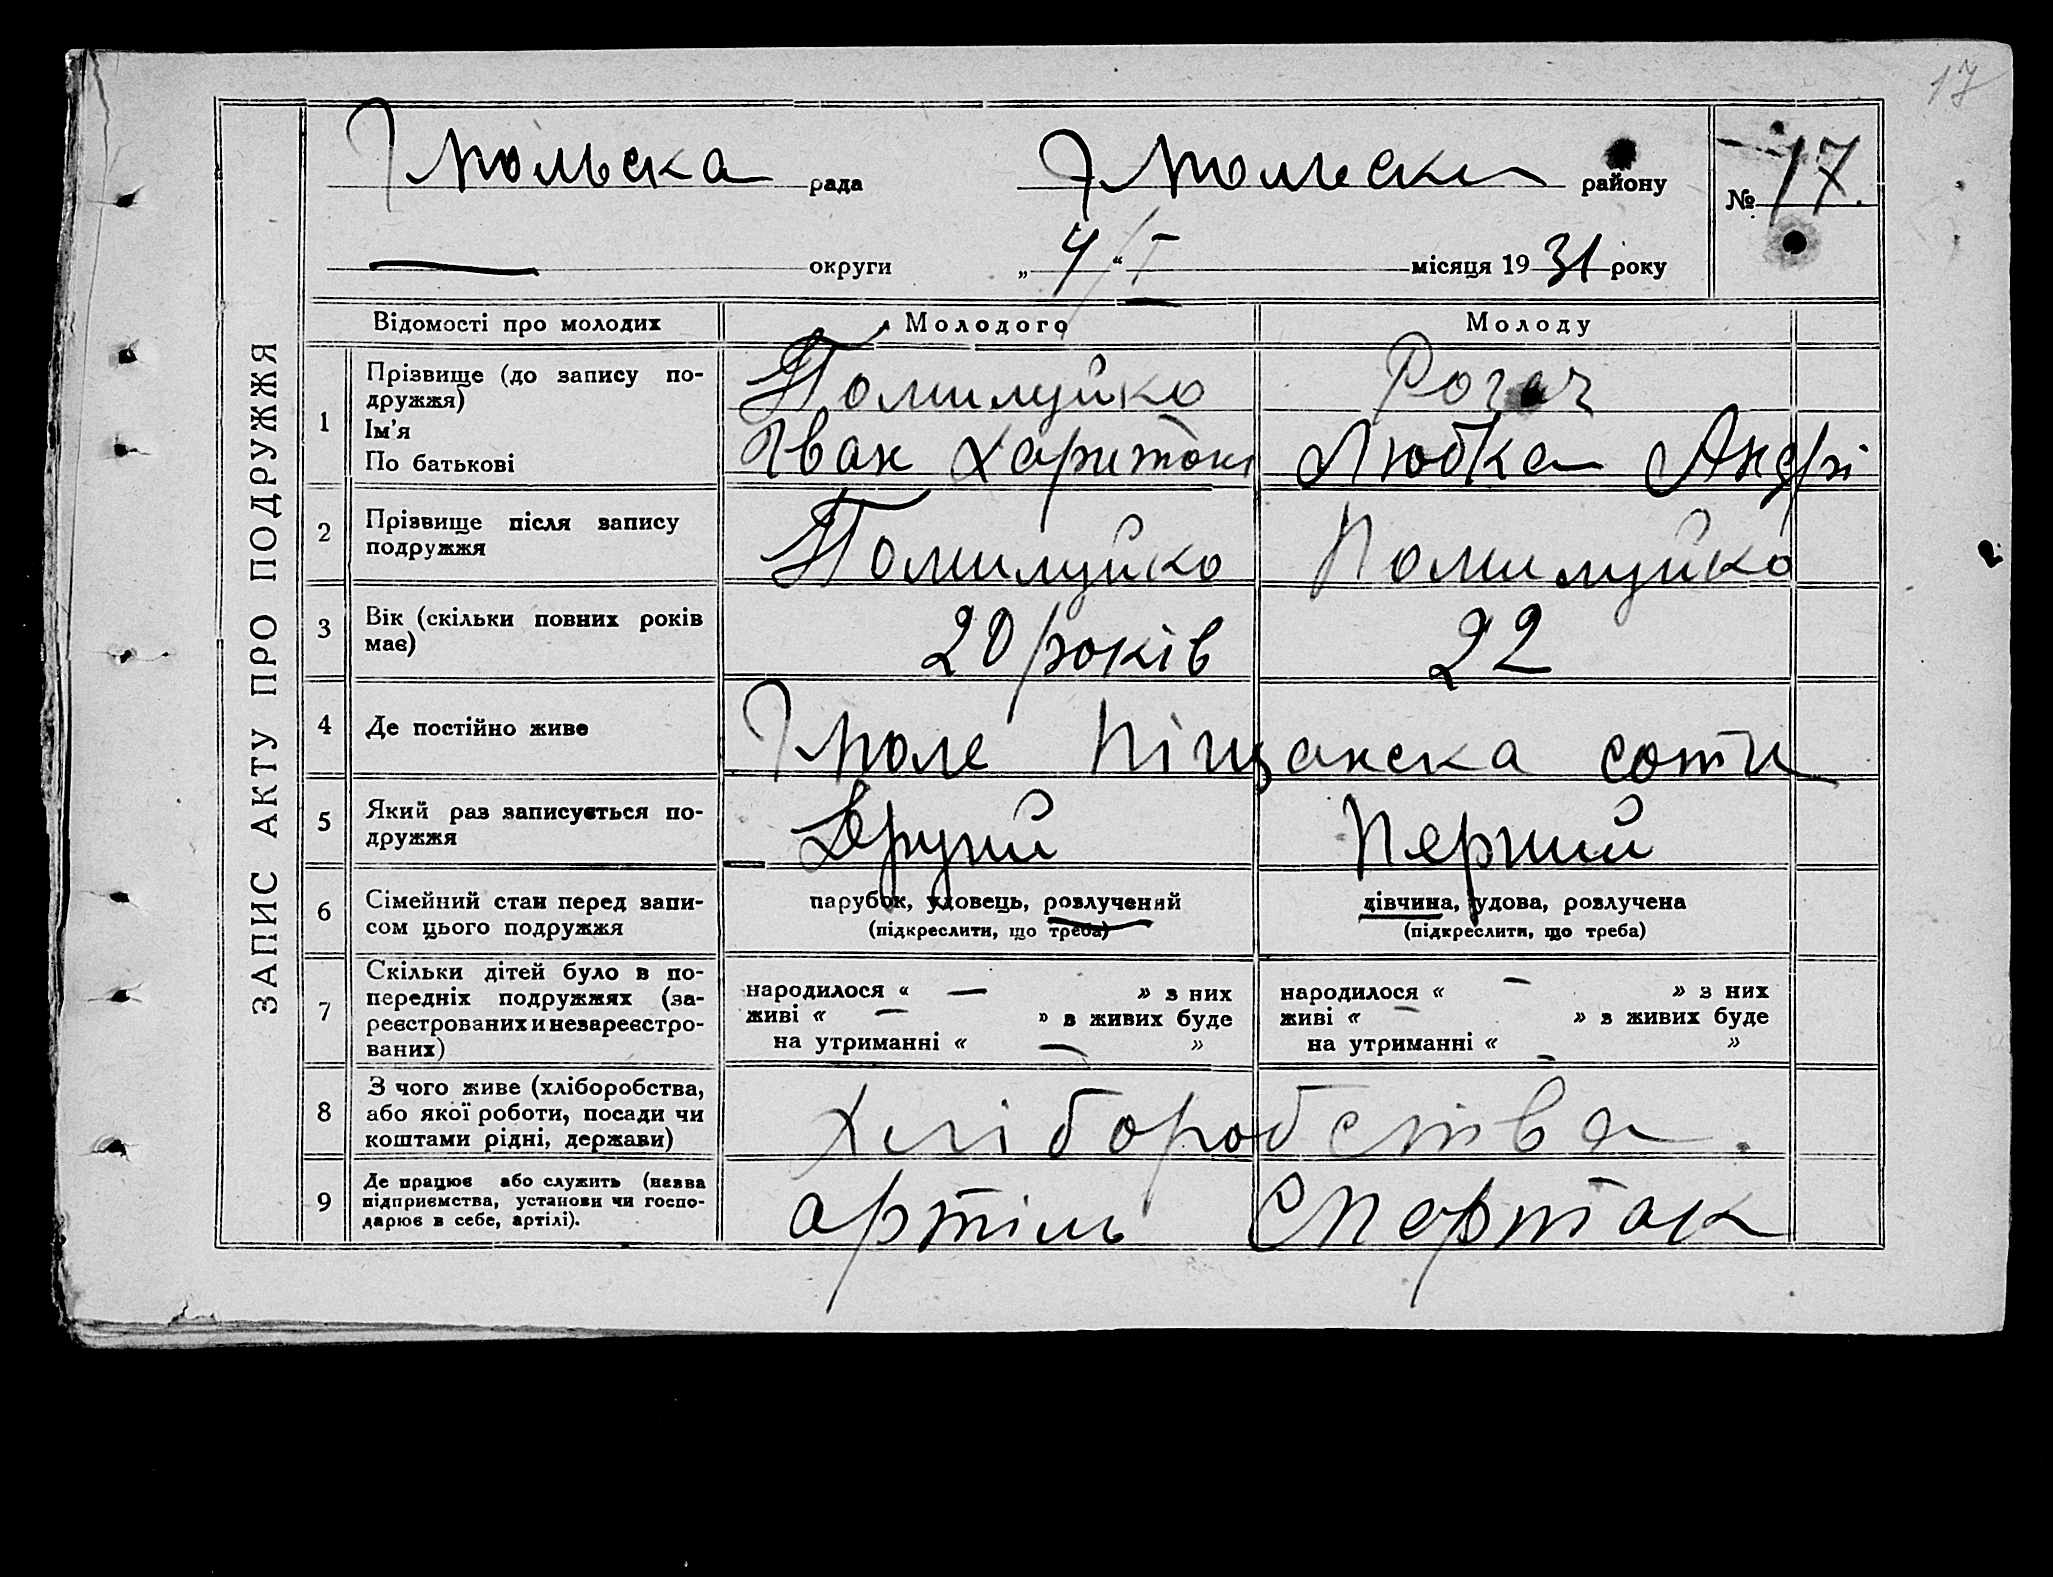 17
Гмольска рада Гмольска району
№ 17.
округи „ 4 “ I місяця 19 31 року
ЗАПИС АКТУ ПРО ПОДРУЖЖЯ
Відомості про молодих Молодого Молоду
1 Прізвище (до запису по-
дружжя)
Помилуйко Рогач
Ім'я
По батькові
Іван Харитон Любка Андрі
2 Прізвище після запису
подружжя
Помилуйко Помилуйко
3 Вік (скільки повних років
має)
20 років 22
4 Де постійно живе Піщанска сотн
5 Який раз записується по-
дружжя
Другий Перший
6 Сімейний стан перед запи-
сом цього подружжя
парубок, удовець, розлучений дівчина, удова, розлучена
(підкреслити, що треба) (підкреслити, що треба)
7 Скільки дітей було в по-
передніх подружжях (за-
реєстрованих и незареєстро-
ваних)
народилося « — » з них народилося « — » з них
живі « — » в живих буде живі « — » в живих буде
на утриманні « — » на утриманні « — »
8 З чого живе (хліборобства,
або якої роботи, посади чи
коштами рідні, держави)
Хліборобства.
9 Де працює або служить (назва
підприємства, установи чи госпо-
дарює в себе, артілі).
артіль Спартак